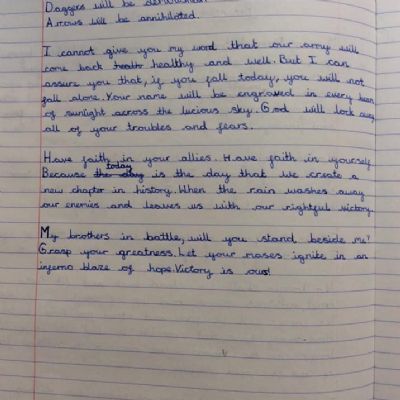 Daggers will be demolished.
Arrows will be annihilated.
I cannot give you my word that our army will
come back health healthy and well. But I can
assure you that, if you fall today, you will not
fall alone. Your name will be engraved in every beam
of sunlight across the lucious sky. God will lock away
all of your troubles and fears.
Have faith in your allies. Have faith in yourself
Because the day today is the day that we create a
new chapter in history. When the rain washes away
our enemies and leaves us with our rightful victory.
My brothers in battle, will you stand beside me?
Grasp your greatness. Let your roses ignite in an
inferno blaze of hope. Victory is ours!